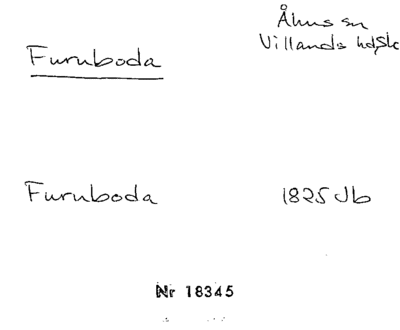 Åhus sn
Furuboda
Villands hd, Sk
Furuboda 1825 Jb
Nr 18345